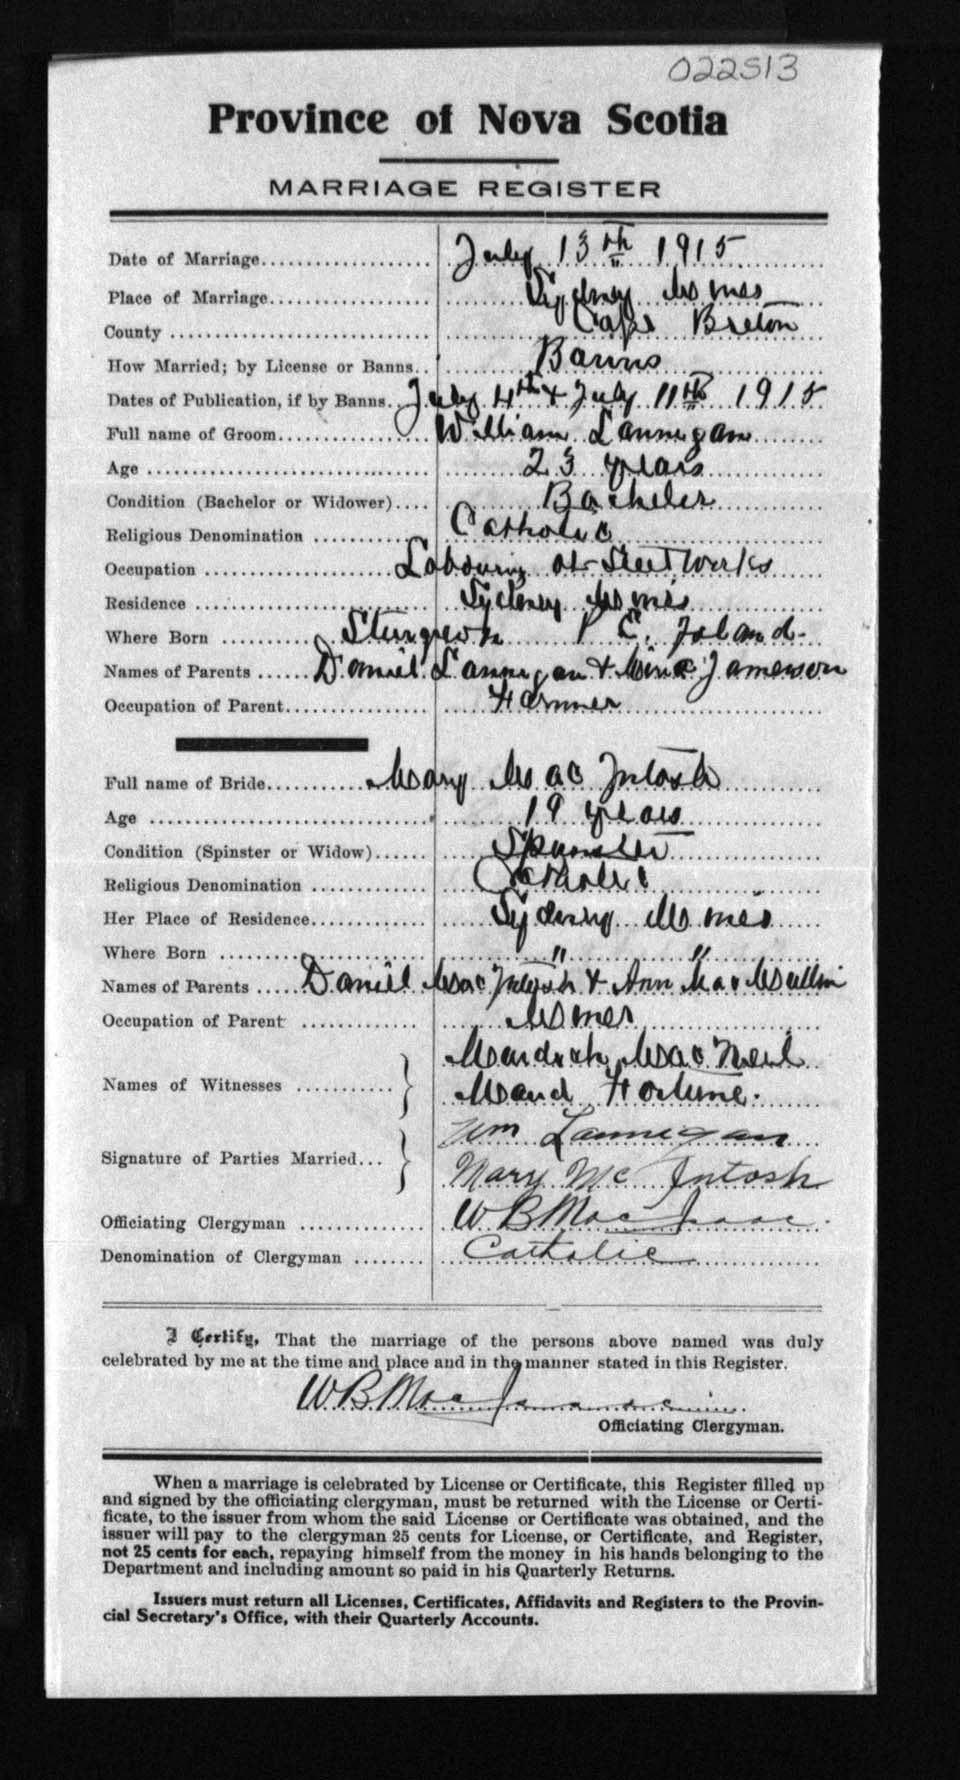 022513
Province of Nova Scotia
MARRIAGE REGISTER
Date of Marriage July 13th 1915
Place of Marriage Sydney Mines
County Cape Breton
How Married; by License or Banns Banns
Dates of Publication, if by Banns July 4th & July 11th 1915
Full name of Groom William Lannigan
Age 23 years
Condition (Bachelor or Widower) Bachelor
Religious Denomination Catholic
Occupation Labouring at Steel Works
Residence Sydney Mines
Where Born Sturgeon P E. Island
Names of Parents Daniel Lannigan & Jameson
Occupation of Parent Farmer
Full name of Bride Mary MacIntosh
Age 19 years
Condition (Spinster or Widow) Spinster
Religious Denomination Catholic
Her Place of Residence Sydney Mines
Where Born " "
Names of Parents Daniel MacIntosh & Ann MacMullin
Occupation of Parent Miner
Names of Witnesses Murdoch MacNeil
Maud Fortune.
Signature of Parties Married Wm Lannigan
Mary McIntosh
Officiating Clergyman W B MacIsaac
Denomination of Clergyman Catholic
I Certify, That the marriage of the persons above named was duly
celebrated by me at the time and place and in the manner stated in this Register.
W B MacIsaac
Officiating Clergyman.
When a marriage is celebrated by License or Certificate, this Register filled up
and signed by the officiating clergyman, must be returned with the License or Certi-
ficate, to the issuer from whom the said License or Certificate was obtained, and the
issuer will pay to the clergyman 25 cents for License, or Certificate, and Register,
not 25 cents for each, repaying himself from the money in his hands belonging to the
Department and including amount so paid in his Quarterly Returns.
Issuers must return all Licenses, Certificates, Affidavits and Registers to the Provin-
cial Secretary's Office, with their Quarterly Accounts.